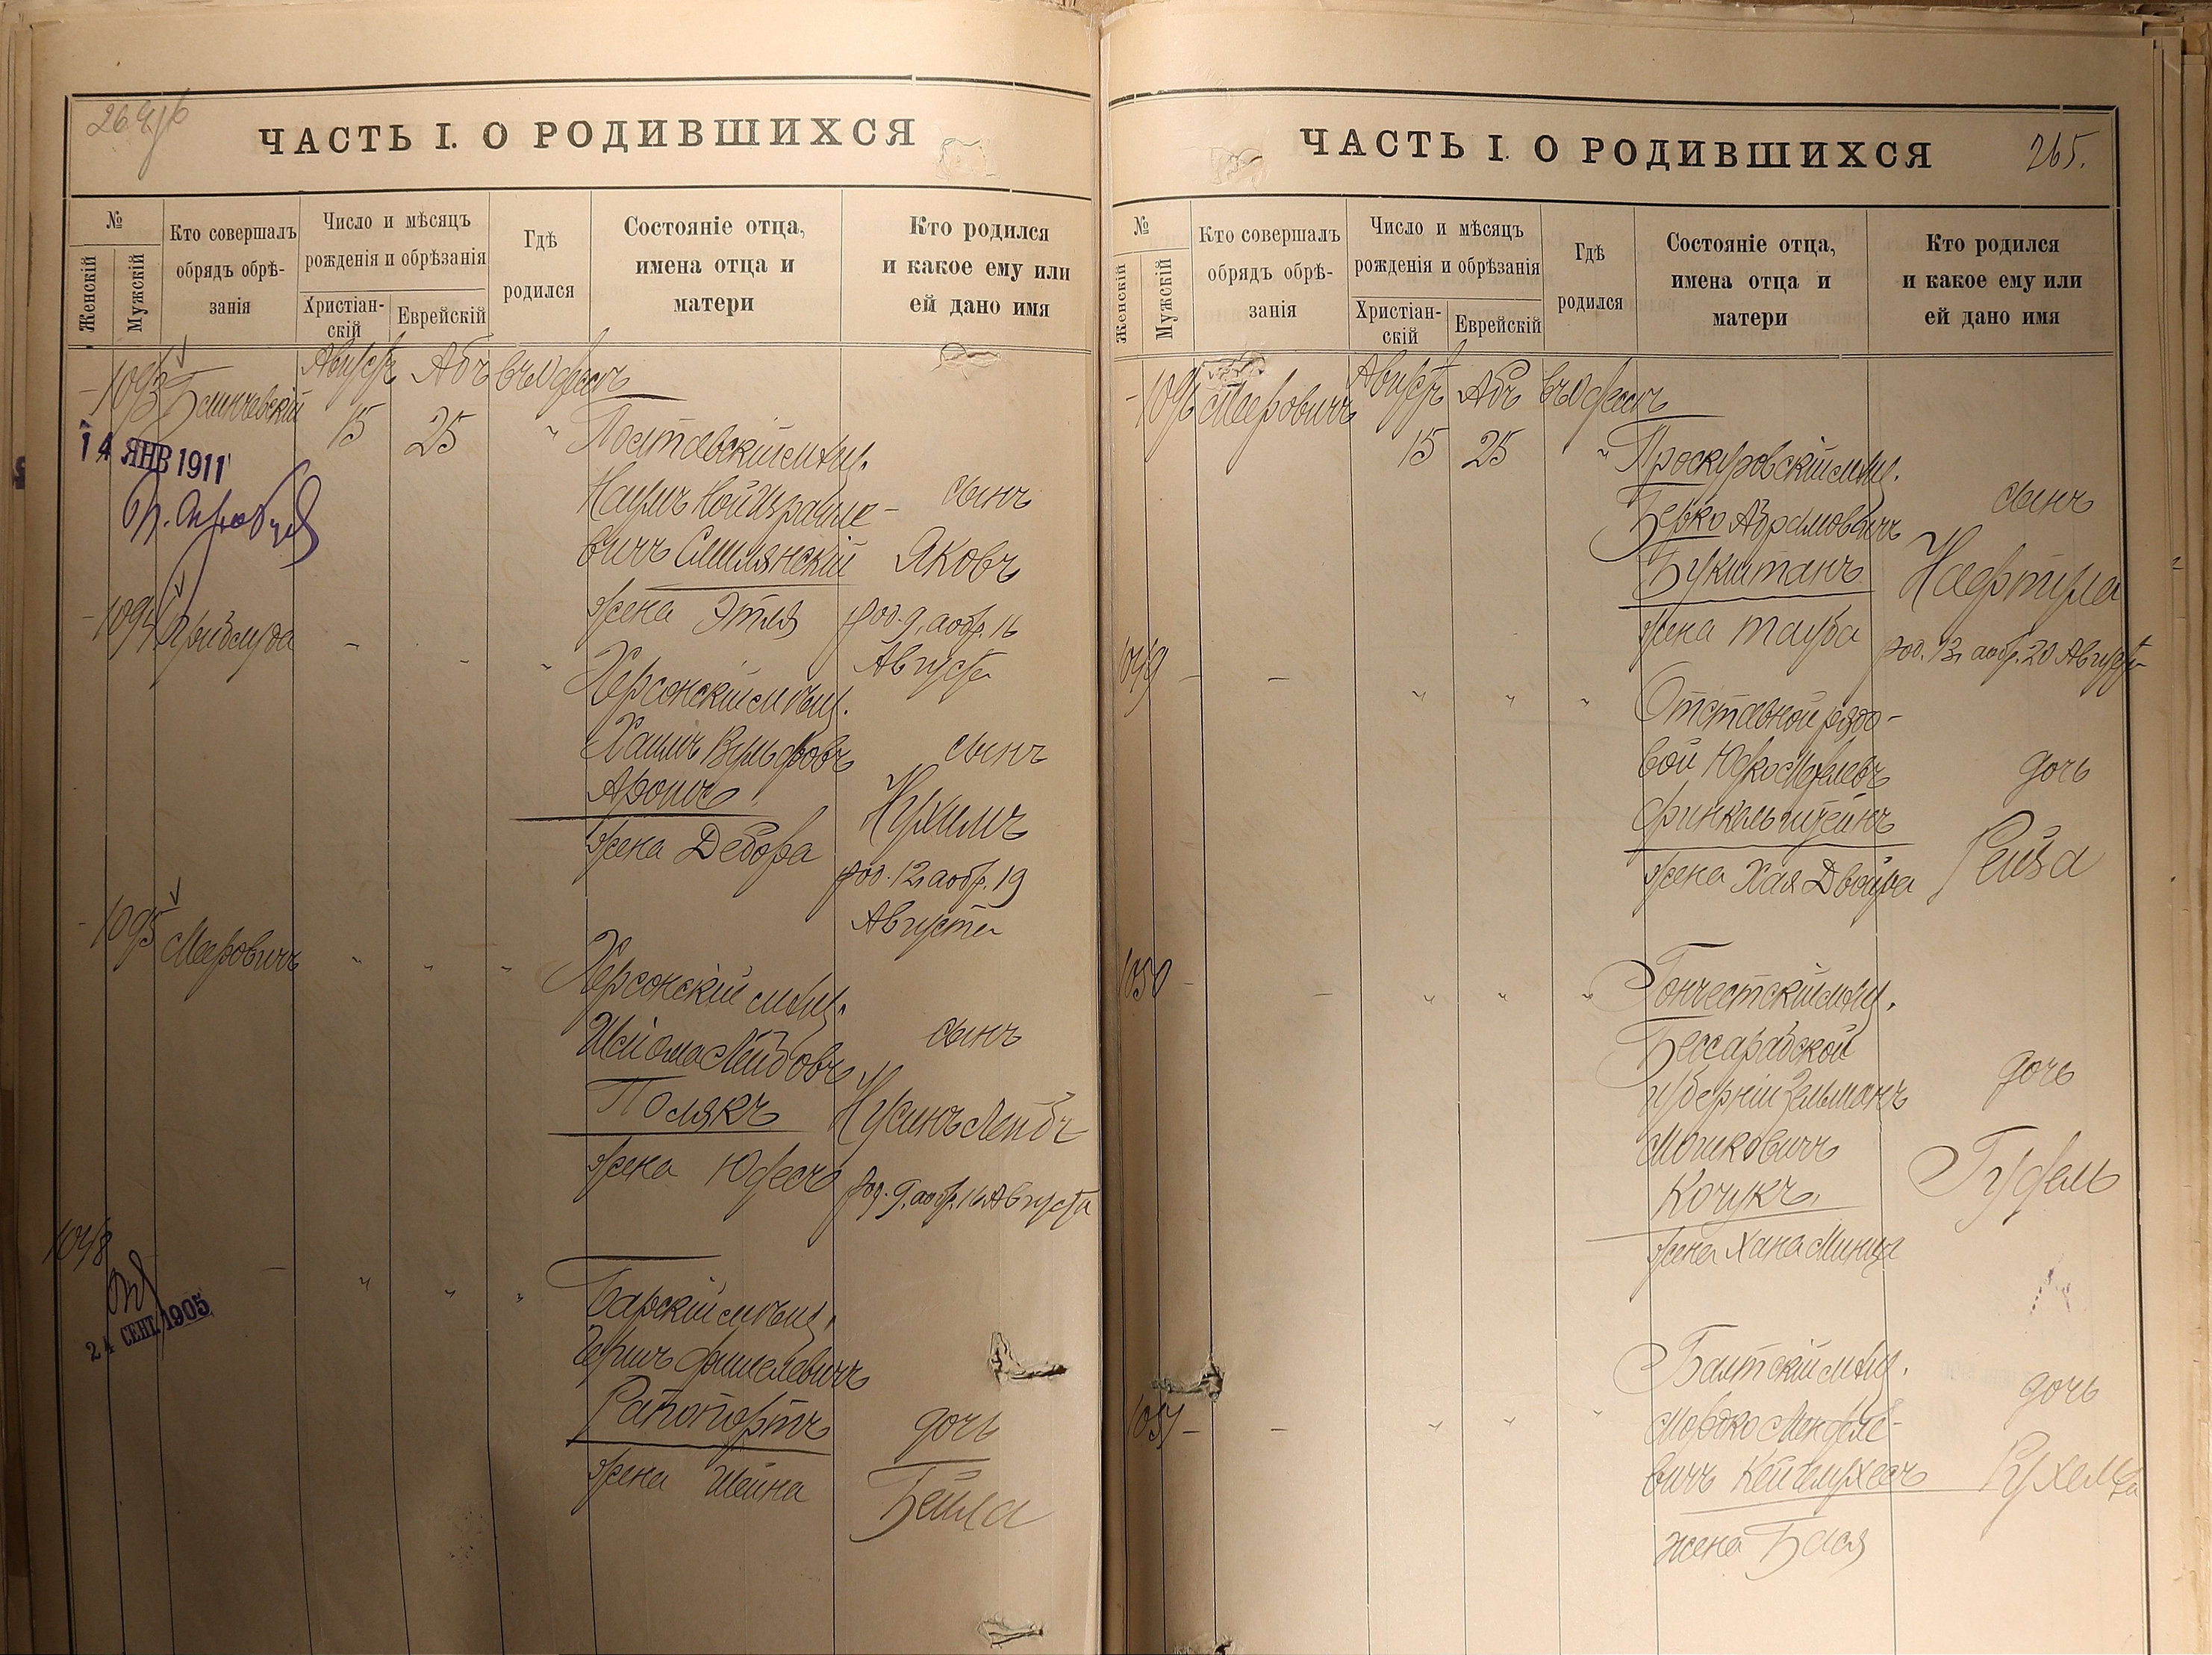 ЧАСТЬ I. О РОДИВШИХСЯ
№
Женскій
Мужскій
Кто совершалъ
обрядъ обрѣ-
занія
Число и мѣсяцъ
рожденія и обрѣзанія
Христіан-
скій
Еврейскій
Гдѣ
родился
Состояніе отца,
имена отца и
матери
Кто родился
и какое ему или
ей дано имя
1093
Августъ Абъ въ Одессѣ
15 25 "
14 ЯНВ 1911
Полтавскій мѣщ.
вичъ Смилянскій
жена Этля
сынъ
Яковъ
род. 9, а обр. 16
Августа
1094
Херсонскій мѣщ.
Хаимъ Вульфовъ
жена Дебора
сынъ
Нухимъ
род. 12, а обр. 19
Августа
1095 Меировичъ " " "
Херсонскій мѣщ.
Лейбовъ
Полякъ
жена Юдесъ
сынъ
Нусинъ Лейбъ
род. 9, а обр. 16 Августа
1048 - " " "
24 СЕНТ. 1905
Барскій мѣщ.
Гершъ Фишелевичъ
Рапопортъ
жена Шейна
дочь
Бейла
ЧАСТЬ I. О РОДИВШИХСЯ
265.
№
Женскій
Мужскій
Кто совершалъ
обрядъ обрѣ-
занія
Число и мѣсяцъ
рожденія и обрѣзанія
Христіан-
скій
Еврейскій
Гдѣ
родился
Состояніе отца,
имена отца и
матери
Кто родился
и какое ему или
ей дано имя
1096 Меировичъ Августъ Абъ въ Одессѣ
15 25 "
Проскуровскій мѣщ.
Берко Абрамовичъ
Букштанъ
жена Тауба
сынъ
Нафтула
род. 13, а обр. 20 Августа
1049 - - " " "
Отставной рядо-
вой Юдко
Финкельштейнъ
жена Хая Двойра
дочь
Рейза
1050 - - " " "
Ганчештскій мѣщ.
Бессарабской
губерніи Зельманъ
Мошковичъ
Кочукъ
жена Хана
дочь
Гудель
1051 - - " " "
Балтскій мѣщ.
Мордко Менделе-
вичъ
жена Бася
дочь
Рухель